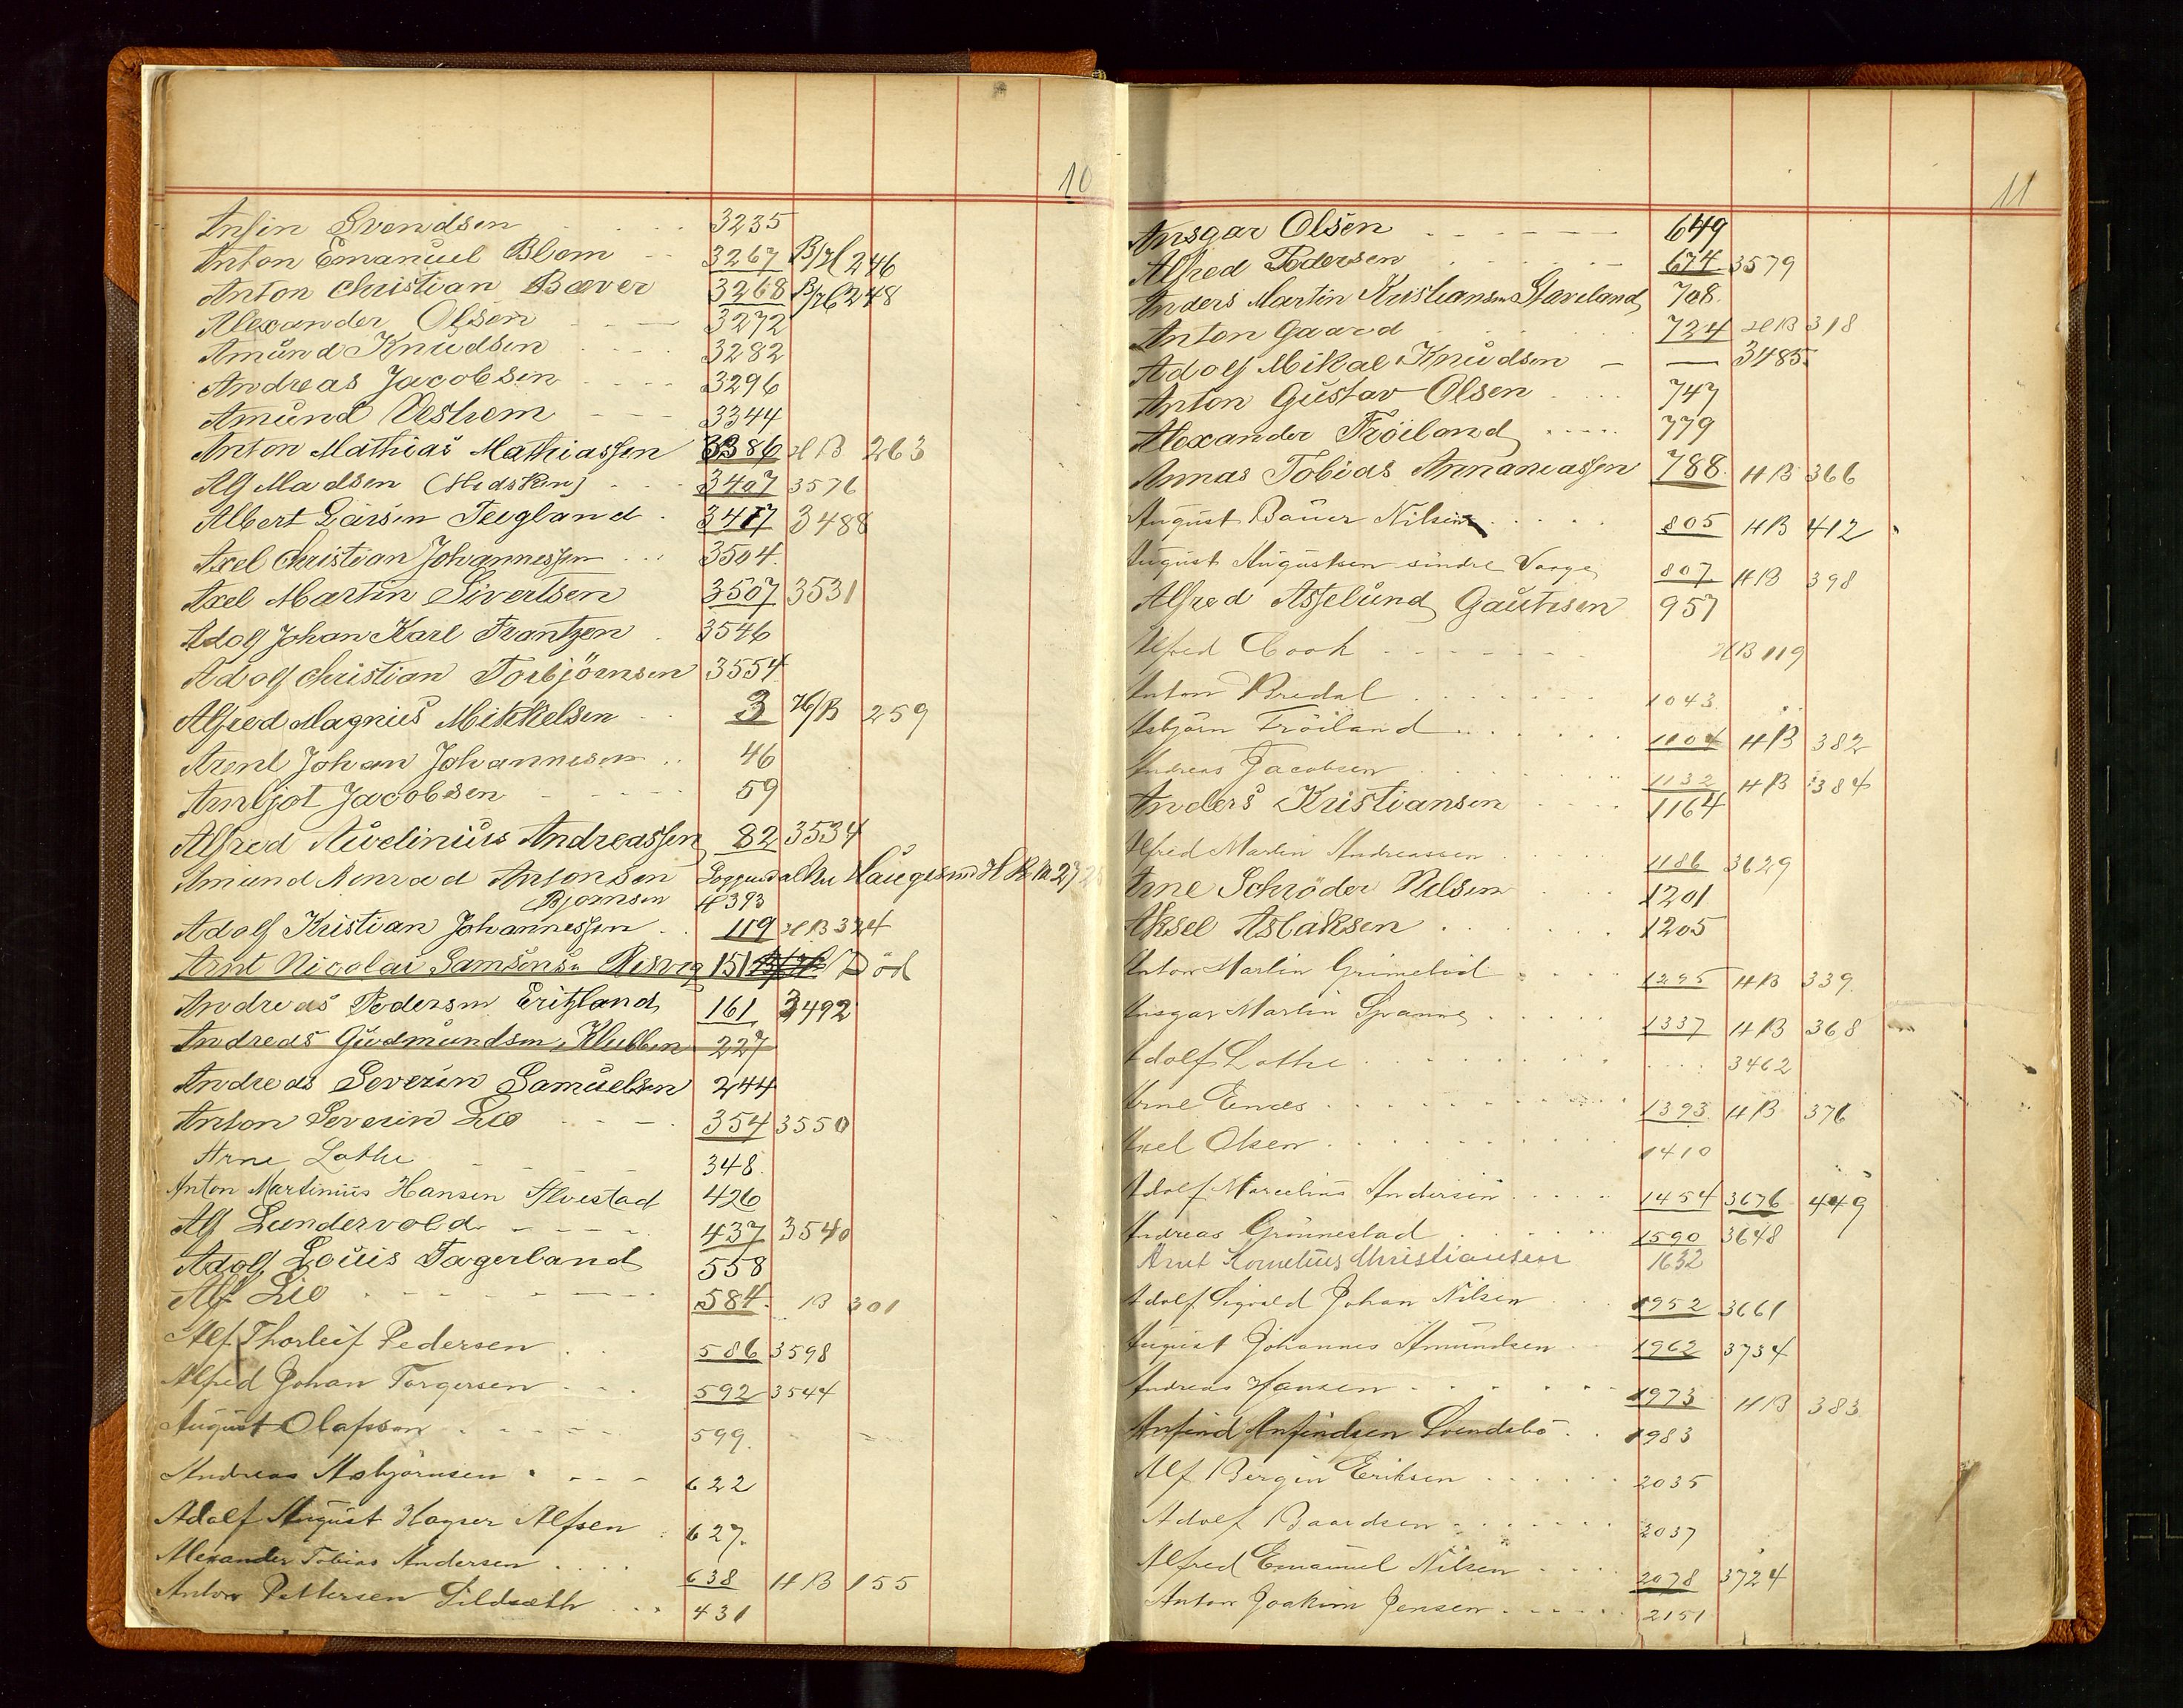 10
Anfin Svendsen 3235
Anton Emanuel Blom 3267 B/H 246
Anton Christian Bæver 3268 B/H 248
Alexander Olsen 3272
Amund Knudsen 3282
Andreas Jacobsen 3296
Amund Vestrem 3344
Anton Mathias Mathiassen 3386 HB 263
Alf Madsen (Hidsken) 3407 3576
Albert Larsen Teigland 3417 3488
Axel Christian Johannessen 3504
Axel Martin Sivertsen 3507 3531
Adolf Johan Karl Frantzen 3546
Adolf Christian Torbjörnsen 3554
Alfred Magnus Mikkelsen 3 H/B 259
Arent Johan Johannesen 46
Arnljot Jacobsen 59
Alfred Auvelinius Andreassen 82 3534
Amund Konrad Antonsen Haugesund
Bjørnsen # 393
Adolf Kristian Johannessen 119 HB 324
Arnt Nicolai Samsonsen Risvig 151 Död
Andreas Pedersen Eritzland 161 3492
Andreas Gudmundsen Klubben 227
Andreas Severin Samuelsen 244
Anton Severin Lie 354 3550
Arne Lothe 348
Anton Martinius Hansen Alvestad 426
Alf Lundervold 437 3540
Adolf Louis Fagerland 558
Alf Lie 584 B 301
Alf Thorleif Pedersen 586 3598
Alfred Johan Torgersen 592 3544
August Olafsson 599
Andreas Asbjörnsen 622
Adolf August Hayser Alfsen 627
Alexander Tobias Andersen 638 HB 155
Anton Pettersen Sildsæth 431
11
Ansgar Olsen 649
Alfred Pedersen 674 3579
Anders Martin Kristiansen Staveland 708
Anton Gaard 724 HB 318
Adolf Mikal Knudsen — 3485
Anton Gustav Olsen 747
Alexander Fröiland 779
Annas Tobias Annaniassen 788 HB 366
August Bauer Nilsen 805 HB 412
August Augustsen søndre Varge 807 HB 398
Alfred Asselund Gautesen 957
Alfred Cook HB 119
Anton Bredal 1043
Asbjörn Fröiland 1104 HB 382
Andreas Jacobsen 1132 HB 384
Anders Kristiansen 1164
Alfred Martin Andreassen 1186 3629
Arne Schröder Nilsen 1201
Aksel Aslaksen 1205
Anton Martin Grimebvid 1295 HB 339
Ansgar Martin Spanne 1337 HB 368
Adolf Lothe 3462
Arne Enæs 1393 HB 376
Axel Olsen 1410
Adolf Marcelius Andersen 1454 3676 449
Andreas Grönnestad 1590 3648
Arnt Kornelius Christiansen 1632
Adolf Sigvald Johan Nilsen 1952 3661
August Johannes Amundsen 1962 3734
Andreas Hansen 1973 HB 383
Anfind Anfindsen Svendsbö 1983
Alf Bergin Eriksen 2035
Adolf Baardsen 2037
Alfred Emanuel Nilsen 2078 3724
Anton Joakim Jensen 2151